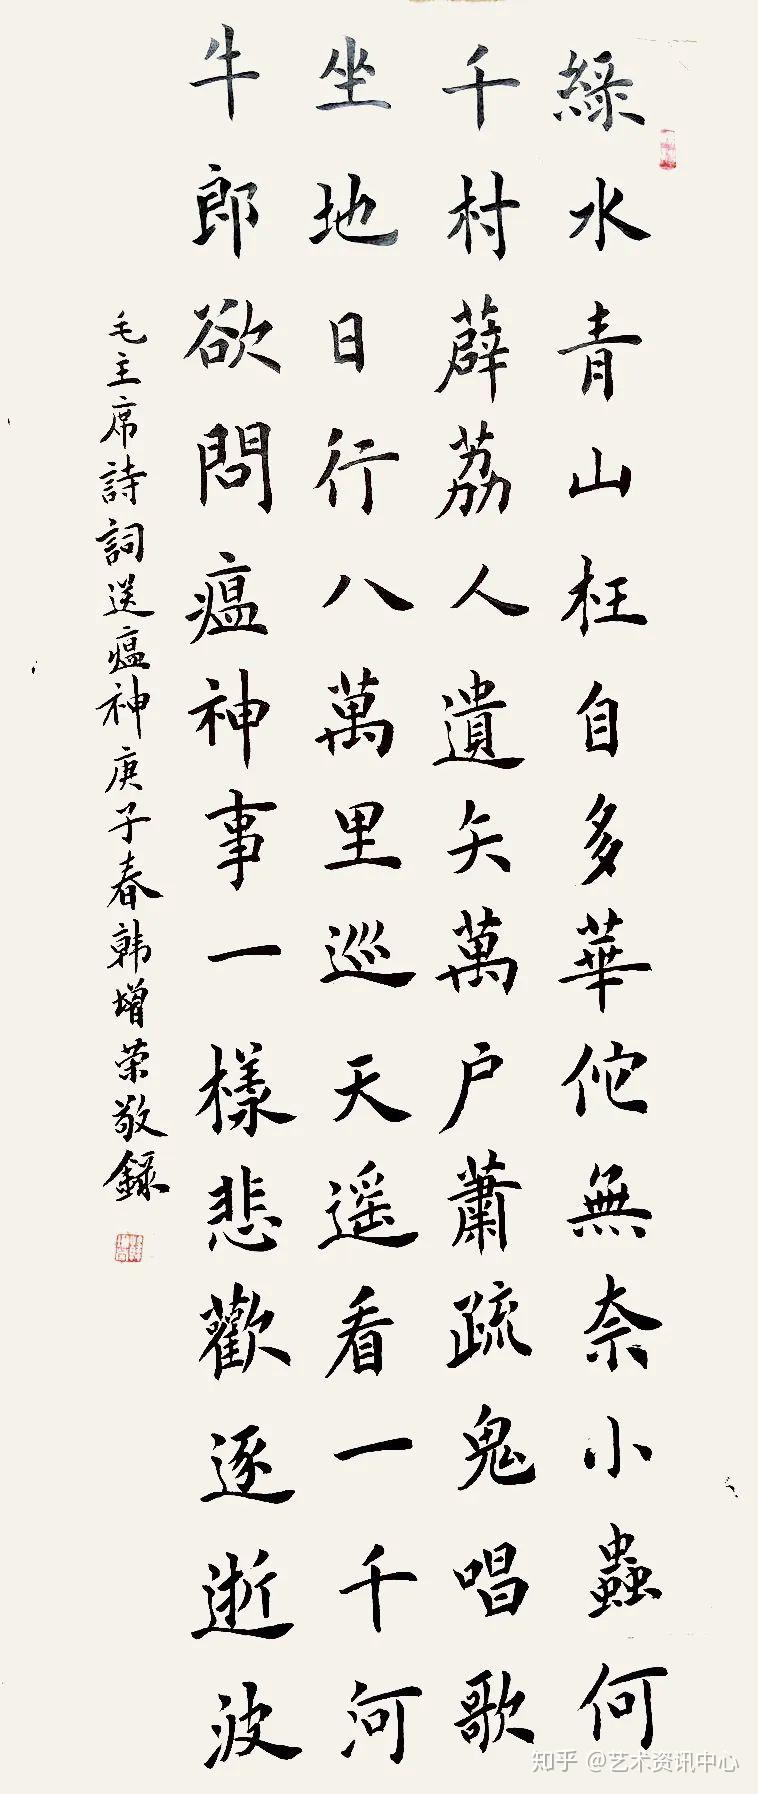 綠水青山枉自多華佗無奈小蟲何
千村薜荔人遺矢萬户蕭疏鬼唱歌
坐地日行八萬里巡天遥看一千河
牛郎欲問瘟神事一樣悲歡逐逝波
毛主席詩詞送瘟神庚子春韩增荣敬録
知乎 @艺术资讯中心